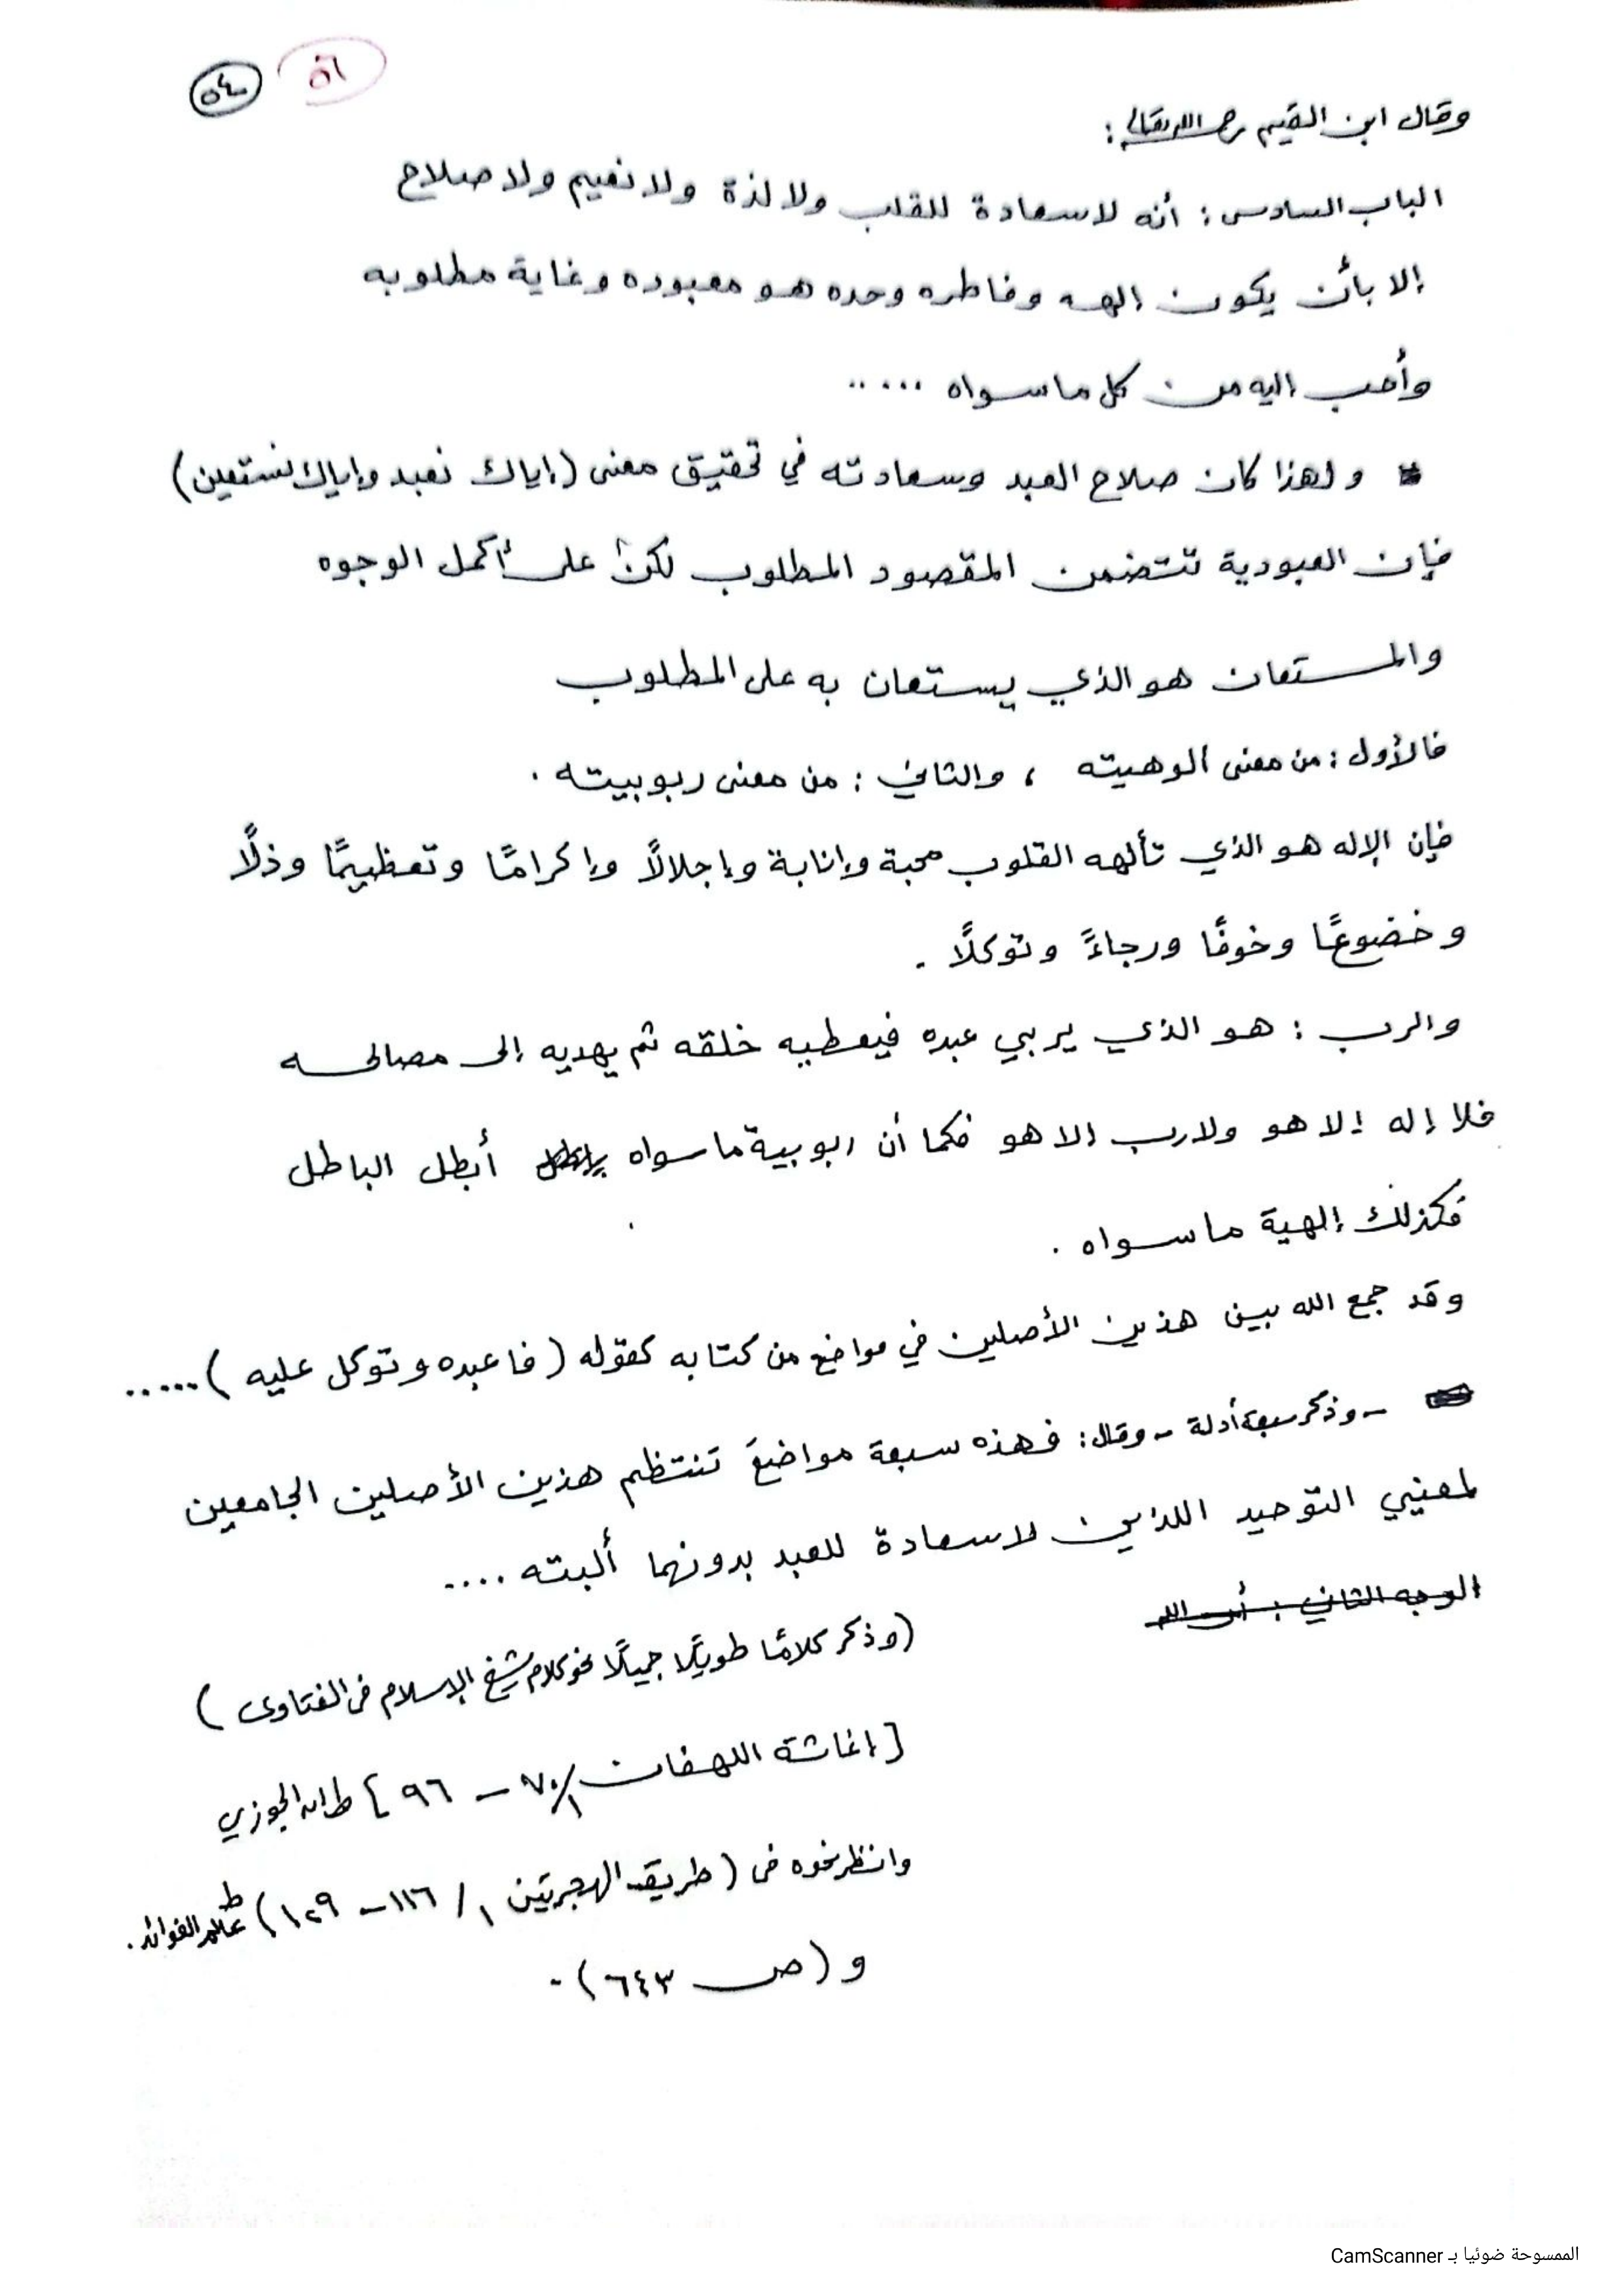 ٥٦ ٥٤
وقال ابن القيم رحمه الله تعالى :
الباب السادس : أنه لا سعادة للقلب ولا لذة ولا نعيم ولا صلاح
إلا بأن يكون إلهه وفاطره وحده هو معبوده وغاية مطلوبه
وأحب إليه من كل ما سواه .....
ولهذا كان صلاح العبد وسعادته في تحقيق معنى (إياك نعبد وإياك نستعين)
فإن العبودية تتضمن المقصود المطلوب لكنْ على أكمل الوجوه
والمستعان هو الذي يستعان به على المطلوب
فالأول : من معنى ألوهيته ، والثاني : من معنى ربوبيته .
فإن الإله هو الذي تألهه القلوب محبة وإنابة وإجلالًا وإكرامًا وتعظيمًا وذلًا
وخضوعًا وخوفًا ورجاءً وتوكلًا .
والرب : هو الذي يربي عبده فيعطيه خلقه ثم يهديه إلى مصالحه
فلا إله إلا هو ولا رب إلا هو فكما أن ربوبية ما سواه أبطل الباطل
فكذلك إلهية ما سواه .
وقد جمع الله بين هذين الأصلين في مواضع من كتابه كقوله ( فاعبده وتوكل عليه ) ......
- وذكر سبعة أدلة - وقال : فهذه سبعة مواضعَ تنتظم هذين الأصلين الجامعين
لمعنيي التوحيد اللذين لا سعادة للعبد بدونهما ألبته ....
الوجه الثاني : أن الله
(وذكر كلامًا طويلًا جميلًا نحو كلام شيخ الإسلام فى الفتاوى )
[ إغاثة اللهفان ١/ ٧٠ - ٩٦ ] ط ابن الجوزي
وانظر نحوه فى ( طريق الهجرتين ١ / ١١٦ - ١٢٩ ) ط عالم الفوائد .
و ( ص ٦٤٣ ) .
الممسوحة ضوئيا بـ CamScanner